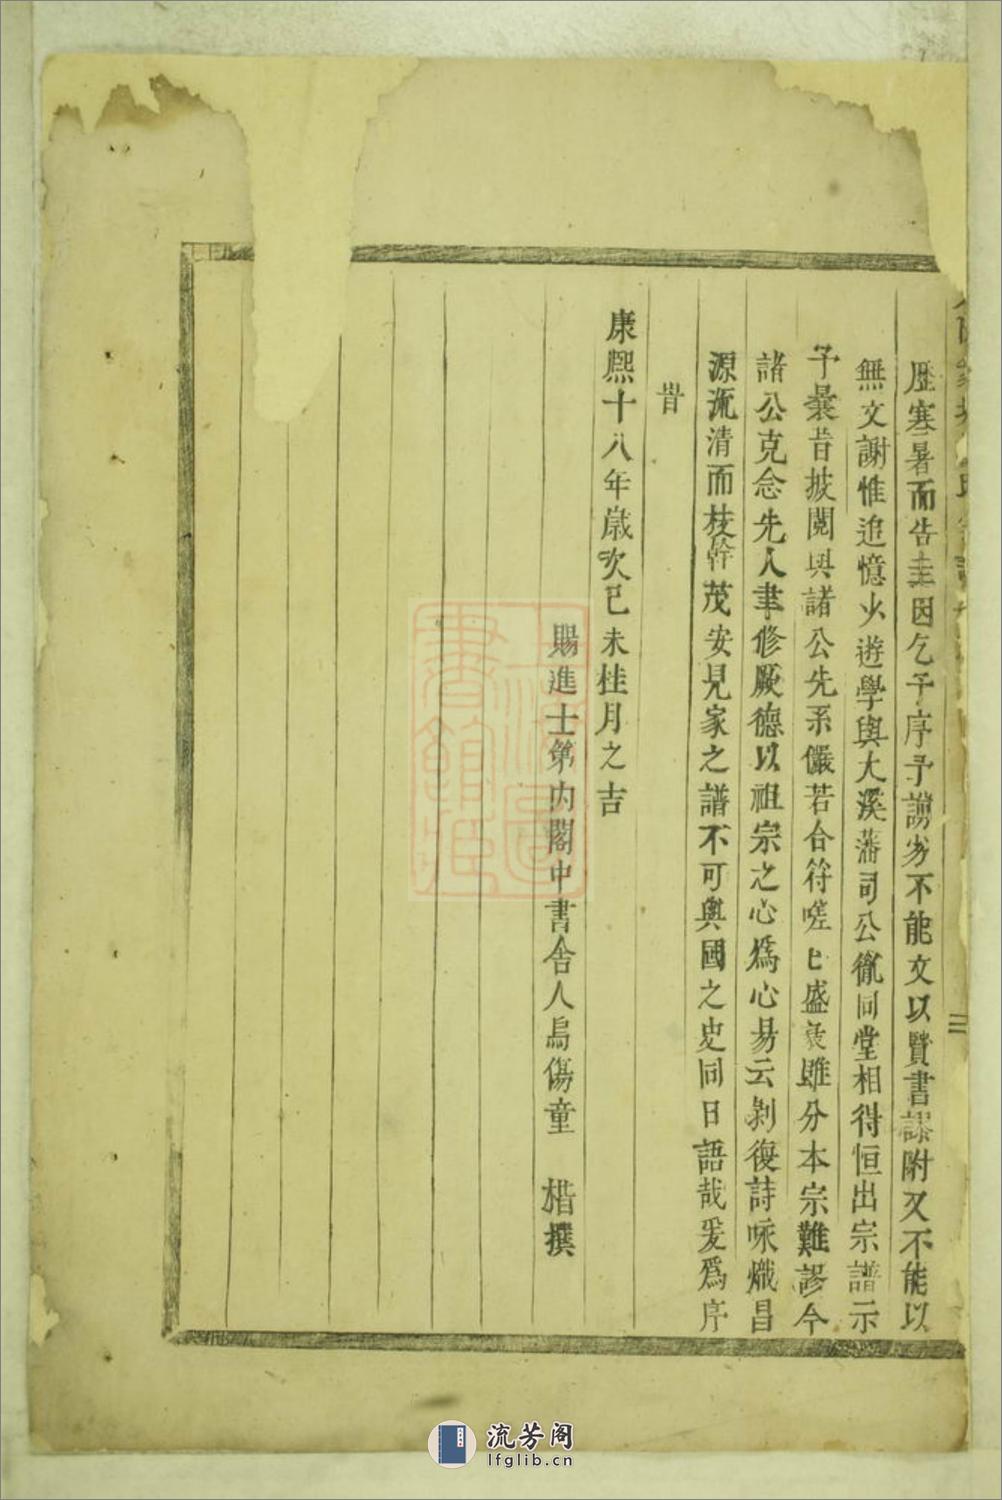 歷寒暑而告圭因乞予序予謭劣不能文以賢書謬附又不能以
無文謝惟追憶火遊學與大溪藩司公胤同堂相得恒出宗譜示
予曩昔披閱與諸公先系儼若合符嗟匕盛衰雖分本宗難謬今
諸公克念先人聿修厥德以祖宗之心爲心易云剝復詩咏熾昌
源流清而枝幹茂安見家之譜不可與國之史同日語哉爰爲序
旹
康熙十八年歲次己未桂月之吉
賜進士第內閣中書舍人烏傷童 楷撰
三
上海圖書館藏
流芳阁
lfglib.cn